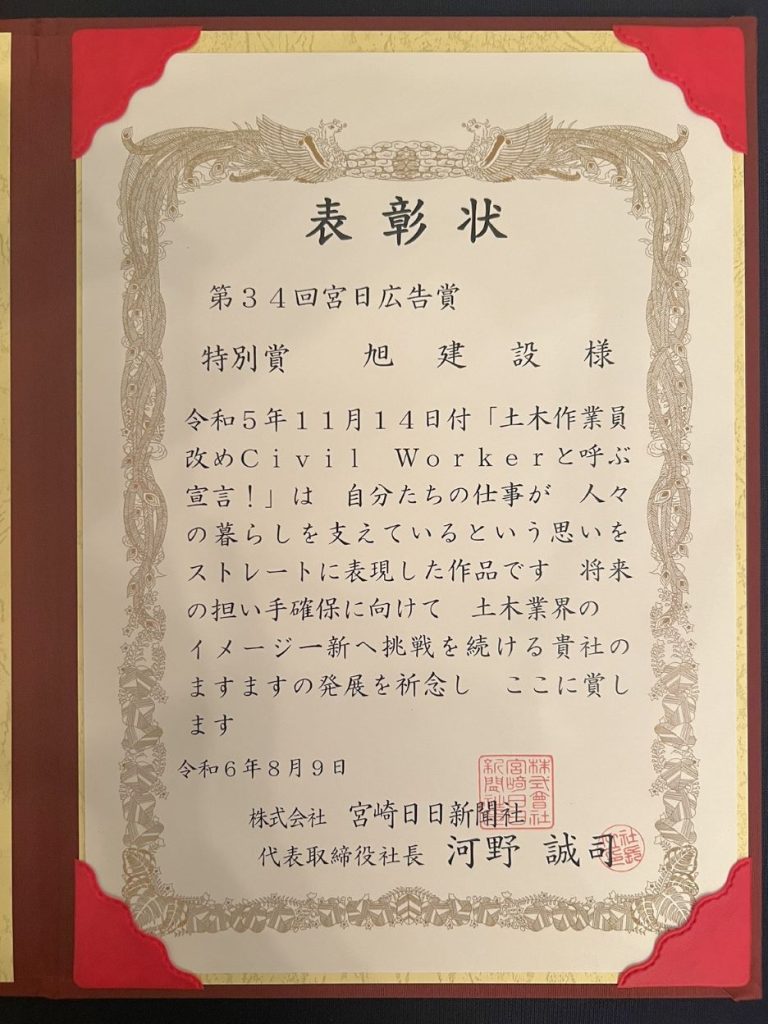 表彰状
第３４回宮日広告賞
特別賞　旭建設様
令和５年１１月１４日付「土木作業員
改めＣｉｖｉｌ　Ｗｏｒｋｅｒと呼ぶ
宣言！」は　自分たちの仕事が　人々
の暮らしを支えているという思いを
ストレートに表現した作品です　将来
の担い手確保に向けて　土木業界の
イメージ一新へ挑戦を続ける貴社の
ますますの発展を祈念し　ここに賞し
ます
令和６年８月９日
株式会社　宮崎日日新聞社
代表取締役社長　河野　誠司
株式會社
宮崎日日
新聞社